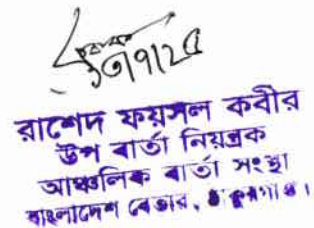 ৩১/৭/২৫
রাশেদ ফয়সল কবীর
উপ বার্তা নিয়ন্ত্রক
আঞ্চলিক বার্তা সংস্থা
বাংলাদেশ বেতার, ঠাকুরগাঁও।